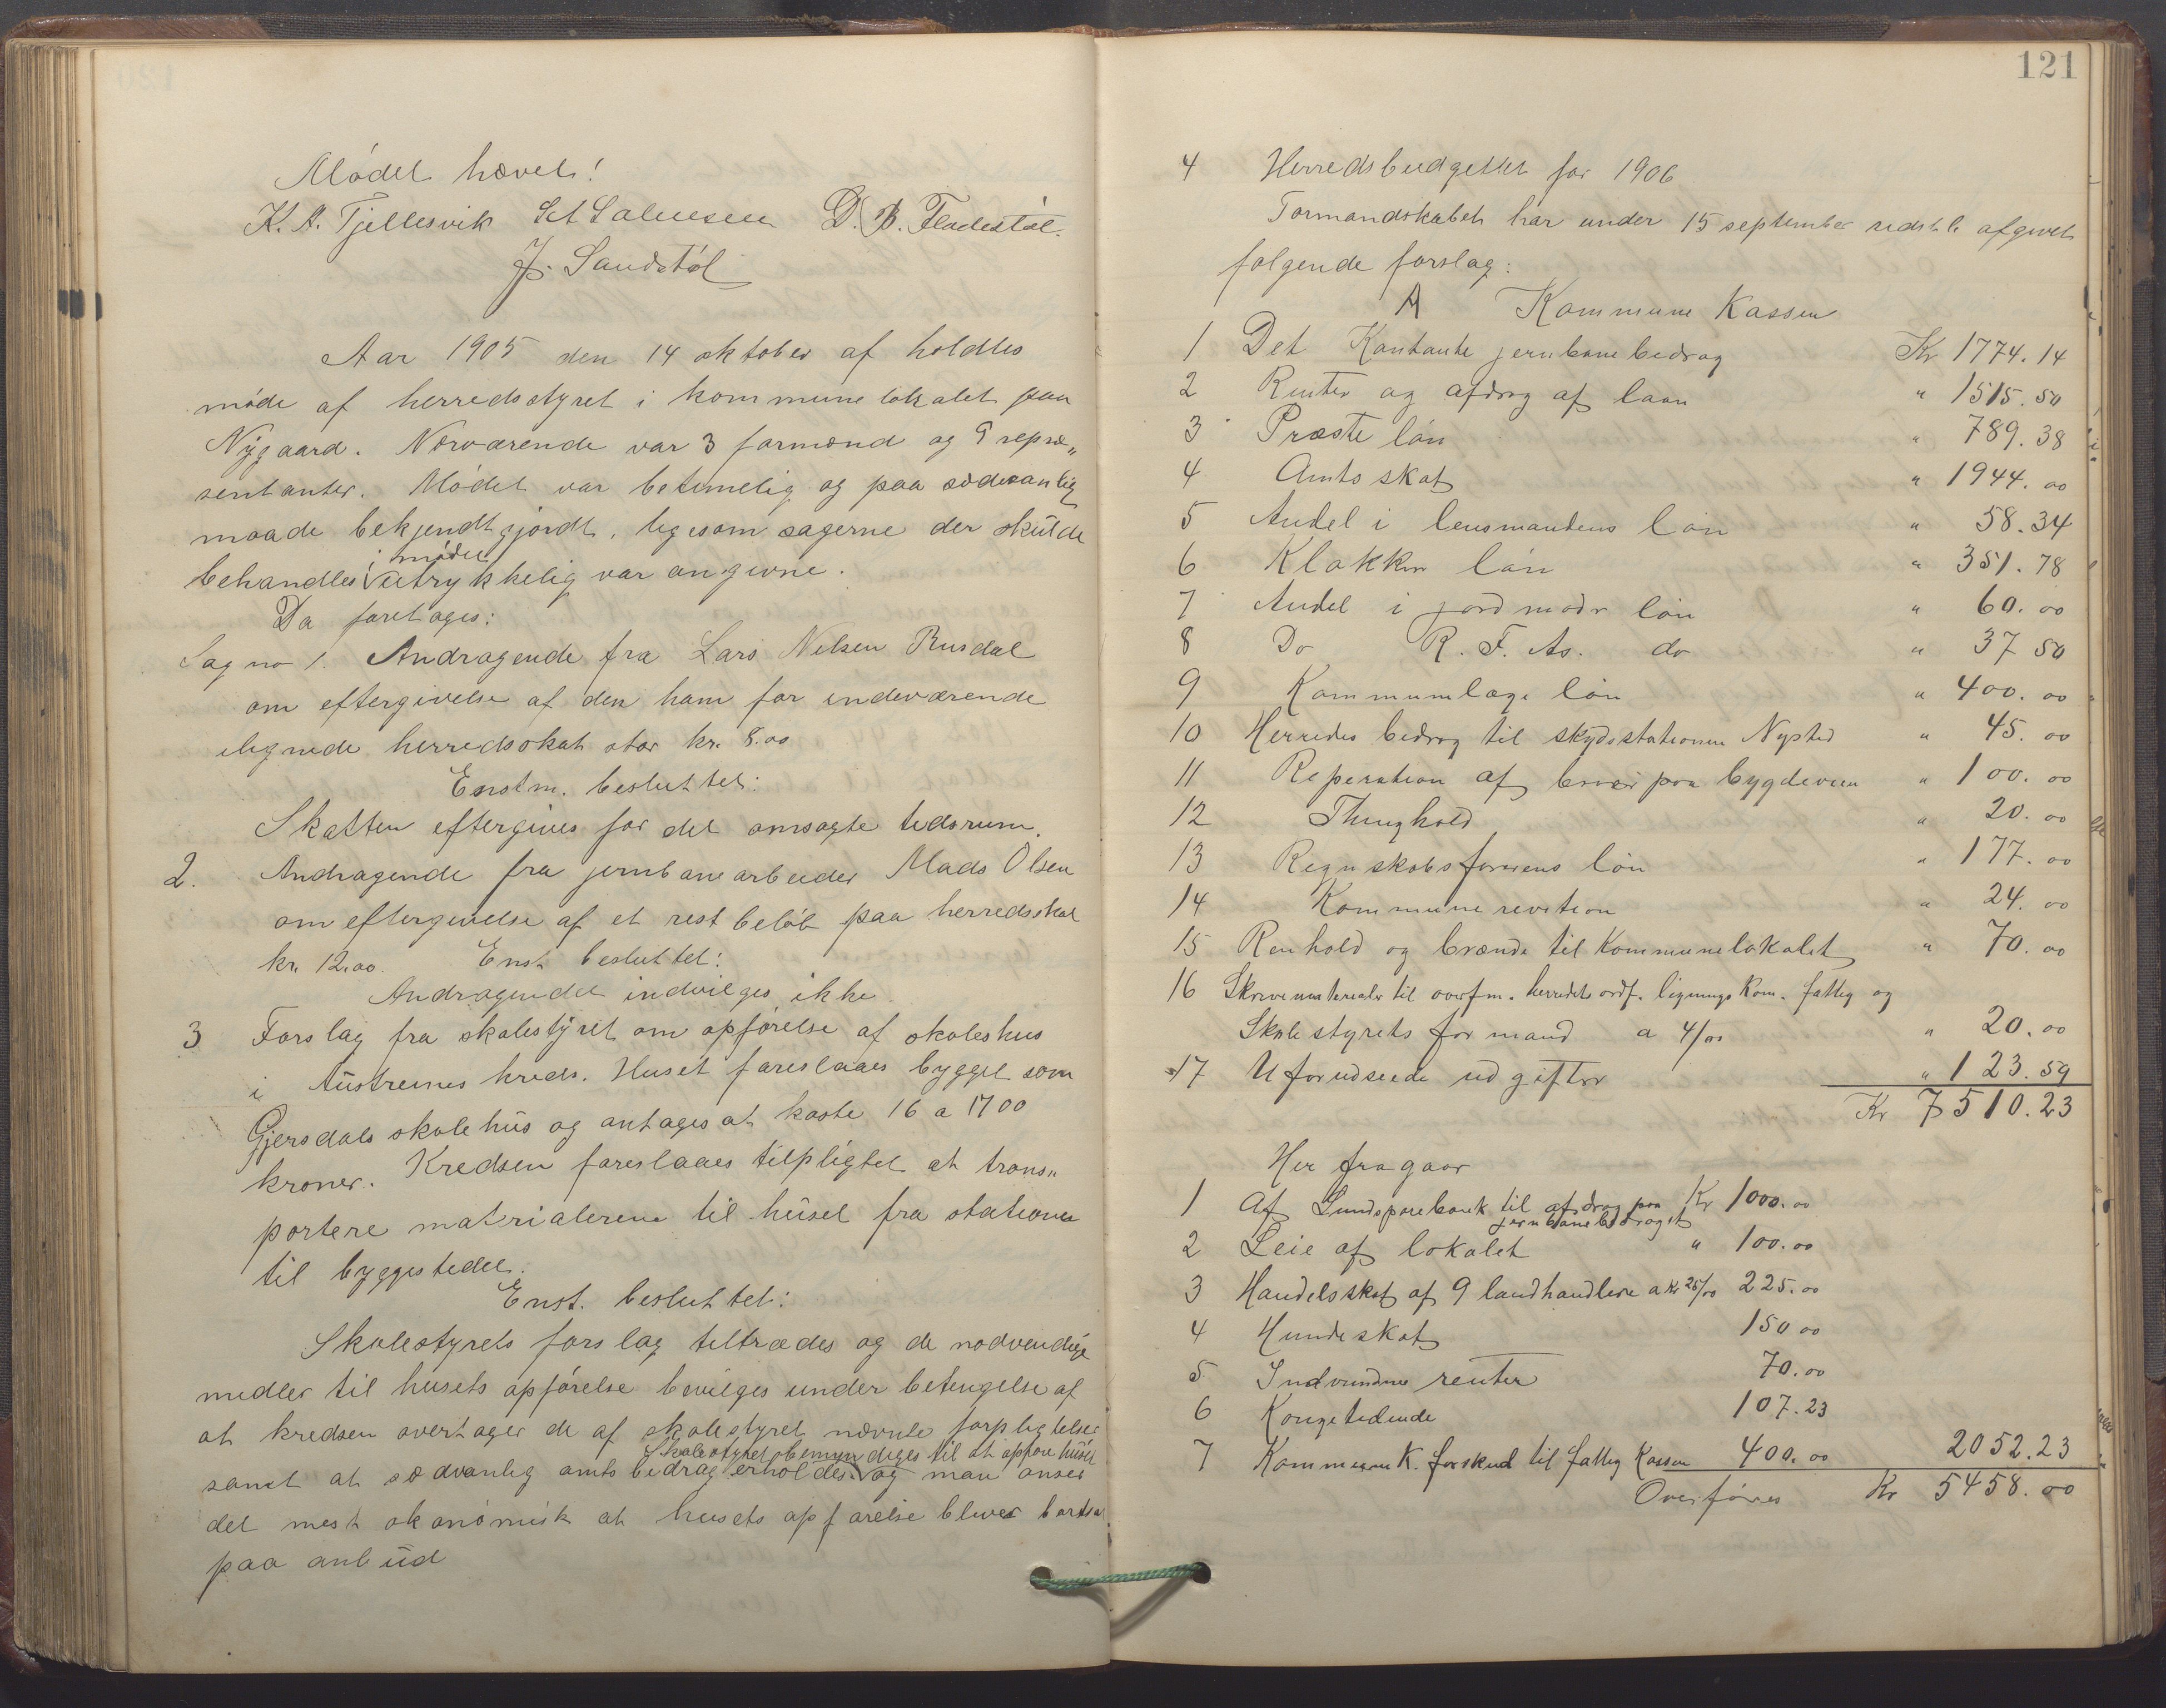 Mödet hævet!
K. A. Tjellesvik D. B. Fladestöl.
J. Sandstöl
Aar 1905 den 14 oktober af holdtes
möde af herredsstyret i kommune lokalet paa
Nygaard. Nærværende var 3 formænd og 9 repræ„
sentanter. Mödet var betimelig og paa sædvanlig
maade bekjendtgjordt, ligesom sagerne der skulde
behandles i mödet udtrykkelig var angivne.
Da foretages:
Sag no 1. Andragende fra Lars Nelsen Rusdal
om eftergivelse af den ham for indeværende
ilignede herredsskat stor kr. 8.00
Enstm. besluttet:
Skatten eftergives for det omsøgte tidsrum.
2. Andragende fra jernbanearbeider Mads Olsen
om eftergivelse af et rest belöb paa herredsskat
kr. 12.00. Enst. besluttet:
Andragendet indvilges ikke.
3 Forslag fra skolestyret om opförelse af skoleshus
i Austreims kreds. Huset foreslaaes bygget som
Gjersdals skolehus og antages at koste 16 a 1700
kroner. Kredsen foreslaaes tilpligtet at trans„
portere materialerene til huset fra stationen
til byggestedet.
Enst. besluttet:
Skolestyrets forslag tiltrædes og de nødvendige
midler til husets opförelse bevilges under betingelse af
at kredsen overtager de af skolestyret nævnte forpligtelser
samt at sædvanlig amtsbidrag erholdes. Skolestyret bemyndiges til at opföre huset og man anser
det mest økonomisk at husets opförelse bliver bortsat
paa anbud
121
4 Herredsbudgettet for 1906
Formandskabet har under 15 september sidstl. afgivet
følgende forslag:
A Kommune Kassen
1 Det Kontante jernbanebidrag Kr 1774.14
2 Renter og afdrag af laan " 1515.50
3 Præste lön " 789.38
4 Amtsskat " 1944.00
5 Andel i lensmandens lön " 58.34
6 Klokker lön " 351.78
7 Andel i jordmodr lön " 60.00
8 Do R. F. As. do " 37 50
9 Kommunelæge lön " 400.00
10 Herredes bidrag til skydsstationen Nysted " 45.00
11 Reperation af broer paa bygdeveien " 100.00
12 Thinghold " 20.00
13 Regnskabsførerens lön " 177.00
14 Kommune revition " 24.00
15 Renhold og brænde til Kommunelokalet " 70.00
16 Skrivematerialer til overfm. herredets ordf. lignings kom. fattig og
Skolestyrets formand a 4/00 " 20.00
17 Uforudseede udgifter " 123.59
Kr 7510.23
Her fragaar
1 Af Lundsparebank til afdrag paa jernbanebidraget Kr 1000.00
2 Leie af lokalet " 100.00
3 Handelsskat af 9 landhandlere a kr 25/00 225.00
4 Hundeskat 150 00
5 Indvundne renter 70.00
6 Kongetiende 107.23
7 Kommune K. forskud til fattig Kassen 400.00 2052.23
Overføres Kr 5458.00